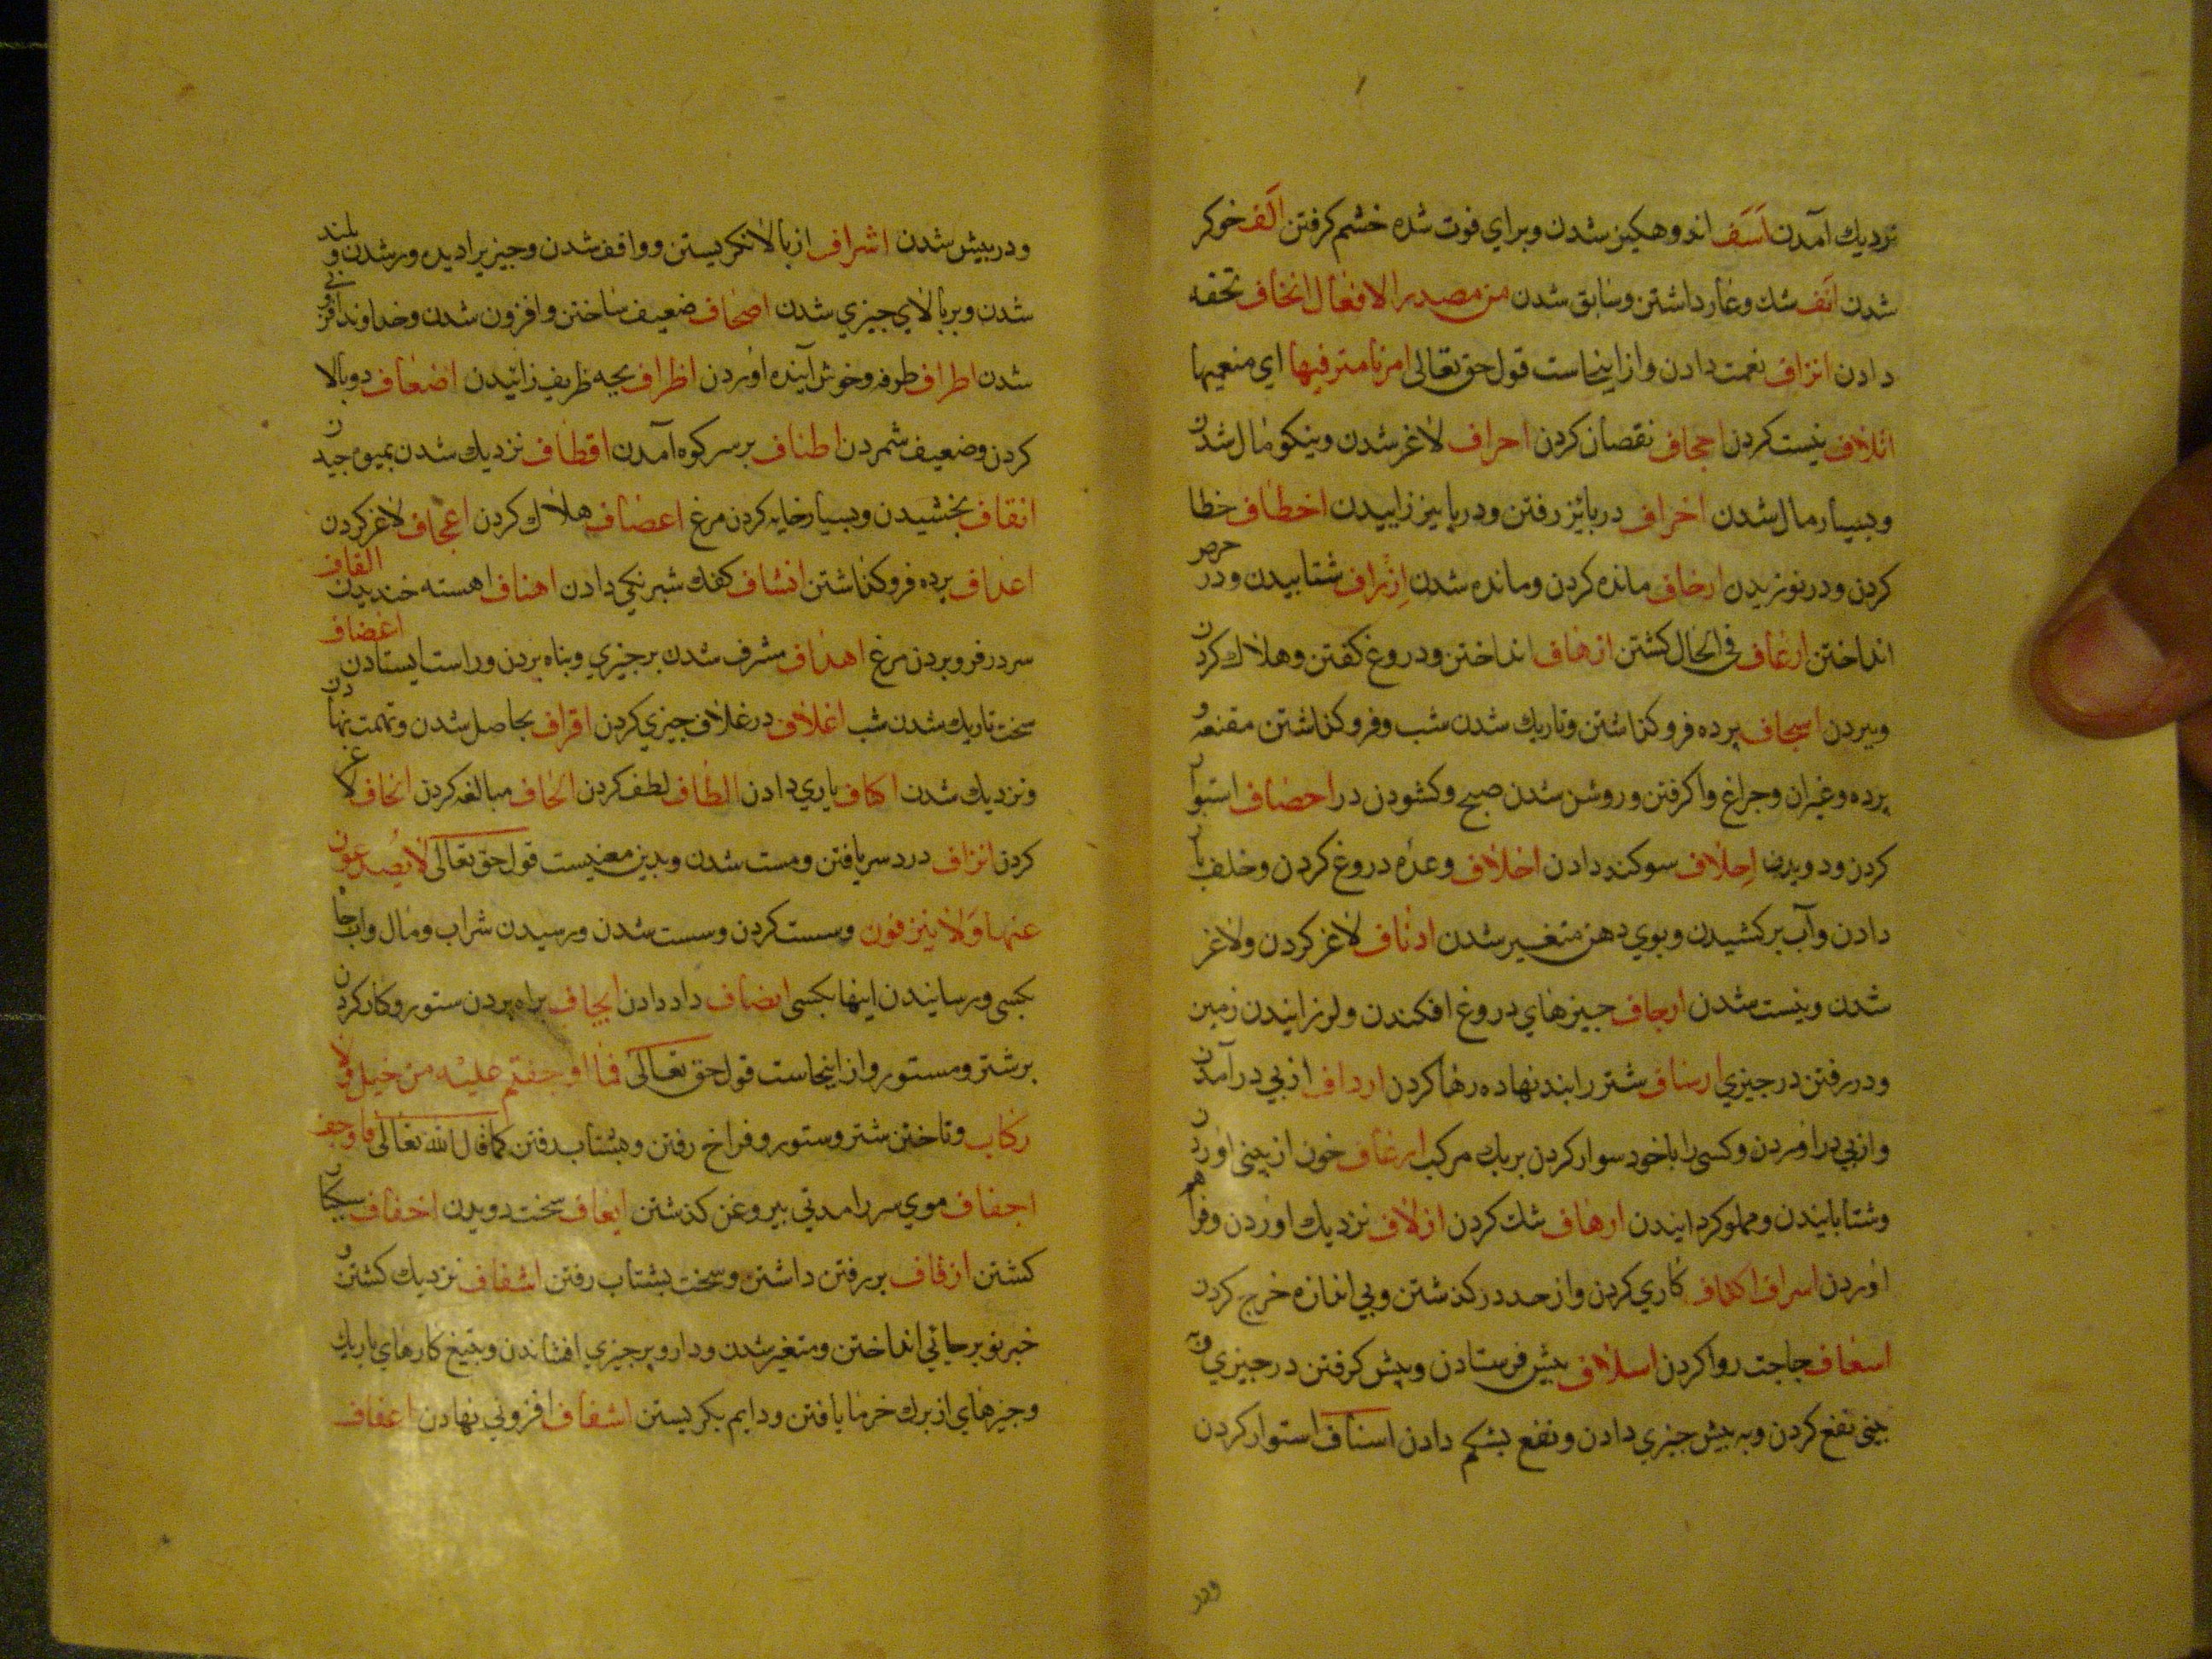 نزديك آمدن اَسَف اندوهكين شدن وبراي فوت شده خشم كرفتن اَلَف خوكر
شدن اَنَف شك وعار داشتن وسابق شدن من مصدر الافعال اتحاف تحفه
دادن اتراف نعمت دادن وازاينجاست قول حق تعالى امرنا مترفيها اي منعيها
اتلاف نيست كردن اجحاف نقصان كردن احراف لاغر شدن ونيكو مال شدن
وبسيار مال شدن اخراف در پائيز رفتن ودر پاييز زاييدن اخطاف خطا
كردن ودر نوزيدن ارخاف مانده كردن ومانده شدن اِزراف شتابيدن ودر حرص
انداختن ازعاف في الحال كشتن ازهاف انداختن ودروغ كفتن وهلاك كردن
وبيردن اسجاف پرده فروكذاشتن وتاريك شدن شب وفروكذاشتن مقنعه و
پرده وغيران وچراغ واكرفتن وروشن شدن صبح وكشودن در احصاف استوار
كردن ودويدن اِحلاف سوكند دادن اخلاف وعده دروغ كردن وخلف باز
دادن وآب بركشيدن وبوي دهن متغير شدن ادناف لاغر كردن ولاغر
شدن ونيست شدن ارجاف چيزهاي دروغ افكندن ولرزانيدن زمين
ودر رفتن در چيزي ارساف شتر را بند نهاده رها كردن ارداف از پي در آمدن
واز پي در اوردن وكسي را باخود سوار كردن بريك مركب ارعاف خون از بيني اوردن
وشتابانيدن ومملو كردانيدن ارهاف تنك كردن ازلاف نزديك اوردن وفراهم
اوردن اسراف اكلاف كاري كردن واز حد در كذشتن وبي اندازه خرج كردن
اسعاف حاجت روا كردن اسلاف پيش فرستادن وپيش كرفتن در چيزي وبه
بيني نفع كردن وبه پيش چيزي دادن ونفع بشكم دادن اسناف استوار كردن
ودر
ودر پيش شدن اشراف از بالا نكريستن وواقف شدن وچيزيرا ديده ور شدن وبلند
شدن وبر بالاي چيزي شدن اضعاف ضعيف ساختن وافزون شدن وخداوند افزوني
شدن اطراف طرفه وخوش آينده اوردن اظراف بچه ظريف زائيدن اضعاف دوبالا
كردن وضعيف شمردن اطناف بر سر كوه آمدن اقطاف نزديك شدن بميوه چيدن
انقاف بخشيدن وبسيار خايه كردن مرغ اعصاف هلاك كردن اعجاف لاغر كردن
اغداف پرده فروكذاشتن انشاف كفك شير نكي دادن اهناف اهسته خنديدن القاف
سر در فرو بردن مرغ اهداف مشرف شدن بر چيزي وپناه بردن وراست ايستادن اغضاف
سخت تاريك شدن شب اغلاف در غلاف چيزي كردن اقراف بحاصل شدن وتهمت نهادن
ونزديك شدن اكناف ياري دادن الطاف لطف كردن الحاف مبالغه كردن انحاف لاغر
كردن انزاف درد سر يافتن ومست شدن وبدين معنيست قول حق تعالى لا يُصدعون
عنها وَلا ينزفون وسست كردن وسست شدن ورسيدن شراب ومال واب چاه
بكسي ورسانيدن اينها بكسي انصاف داد دادن ايجاف براه بردن ستور وكار كردن
بر شتر ومستور وازاينجاست قول حق تعالى فما اوجفتم عليه من خيل ولا
ركاب وتاختن شتر وستور وفراخ رفتن وبشتاب رفتن كما قال الله تعالى فاوجف
اجفاف موي سر را مدتي بيروغن كذشتن ايعاف سخت دويدن اخفاف سبكبار
كشتن ازفاف بر رفتن داشتن وسخت بشتاب رفتن اشفاف نزديك كشتن و
خبر نو بر جائي انداختن ومتغير شدن ودارو بر چيزي افشاندن وبتيغ كارهاي باريك
وچيزهاي از برك خرما يافتن ودايم بكريستن اشفاف افزوني نهادن اعفاف